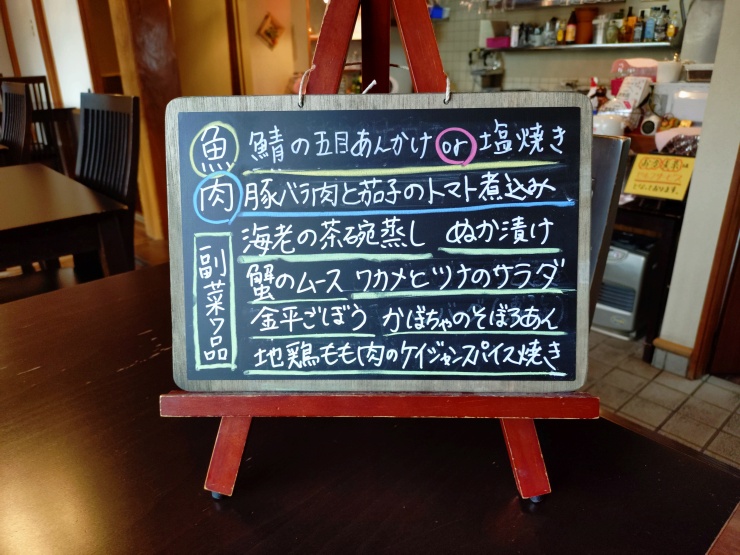 魚 鯖の五目あんかけ or 塩焼き
肉 豚バラ肉と茄子のトマト煮込み
副菜7品
海老の茶碗蒸し ぬか漬け
蟹のムース ワカメとツナのサラダ
金平ごぼう かぼちゃのそぼろあん
地鶏もも肉のケイジャンスパイス焼き